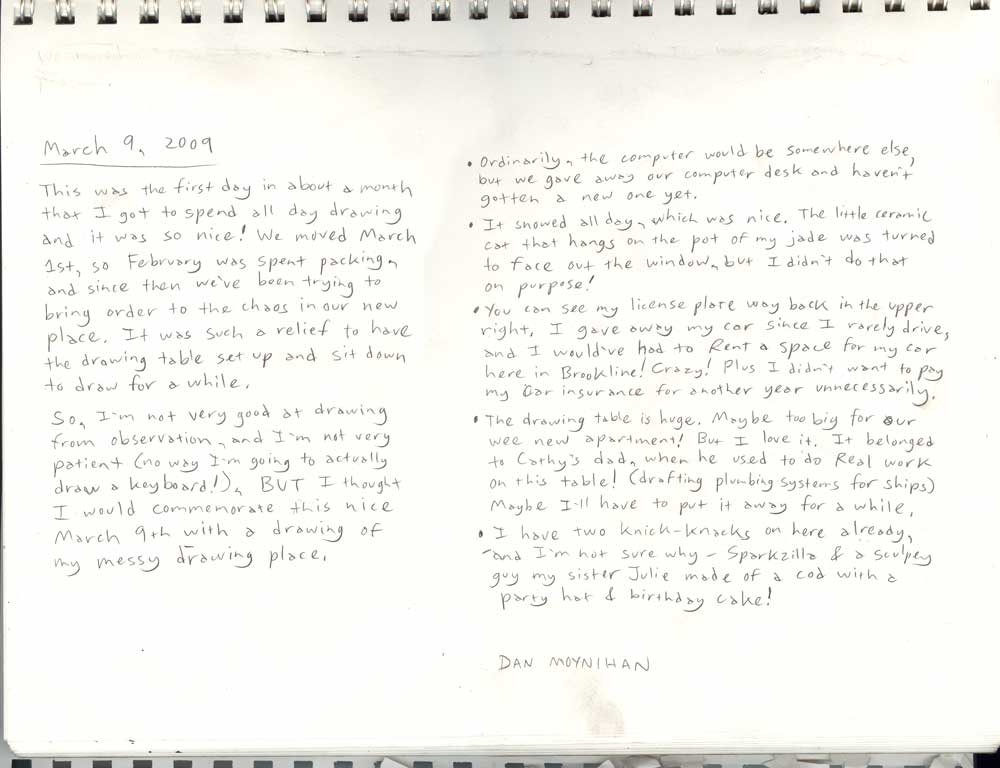 March 9, 2009
This was the first day in about a month
that I got to spend all day drawing
and it was so nice! We moved March
1st, so February was spent packing,
and since then we've been trying to
bring order to the chaos in our new
place. It was such a relief to have
the drawing table set up and sit down
to draw for a while.
So, I'm not very good at drawing
from observation, and I'm not very
patient (no way I'm going to actually
draw a keyboard!), BUT I thought
I would commemorate this nice
March 9th with a drawing of
my messy drawing place.
• Ordinarily, the computer would be somewhere else,
but we gave away our computer desk and haven't
gotten a new one yet.
• It snowed all day, which was nice. The little ceramic
cat that hangs on the pot of my jade was turned
to face out the window, but I didn't do that
on purpose!
• You can see my license plate way back in the upper
right. I gave away my car since I rarely drive,
and I would've had to Rent a space for my car
here in Brookline! Crazy! Plus I didn't want to pay
my car insurance for another year unnecessarily.
• The drawing table is huge. Maybe too big for our
wee new apartment! But I love it. It belonged
to Cathy's dad, when he used to do Real work
on this table! (drafting plumbing systems for ships)
Maybe I'll have to put it away for a while.
• I have two knick-knacks on here already,
and I'm not sure why - Sparkzilla & a sculpey
guy my sister Julie made of a cod with a
party hat & birthday cake!
DAN MOYNIHAN